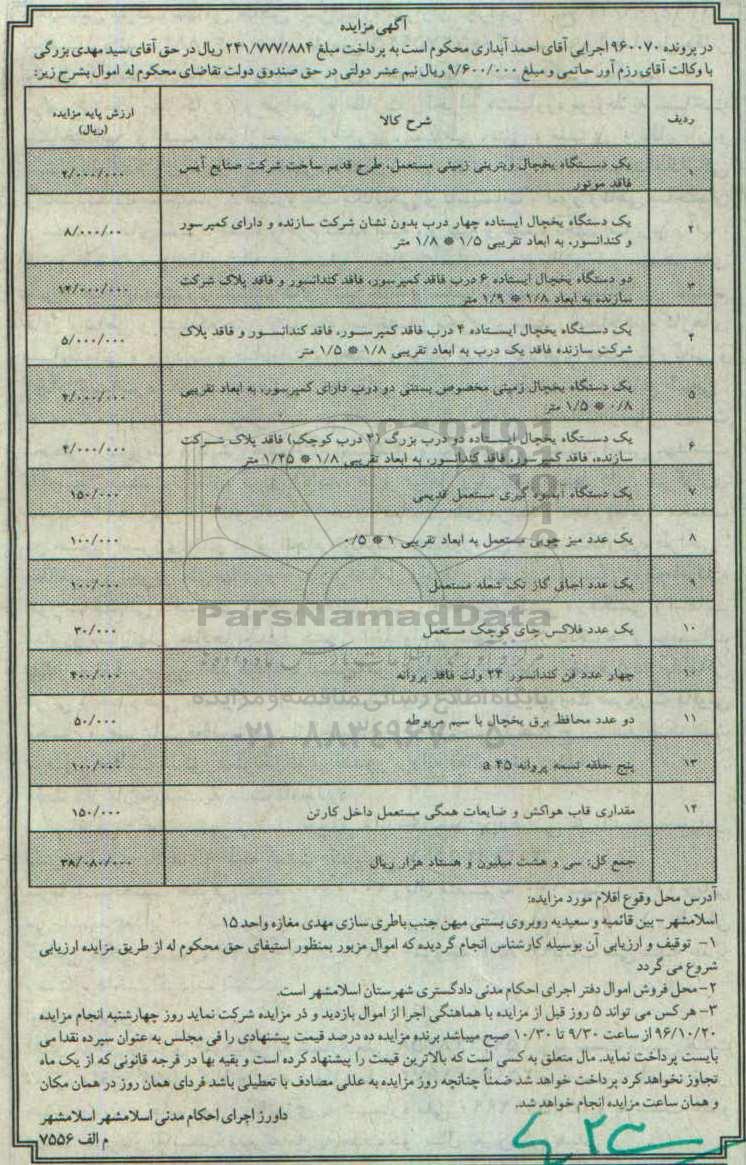 آگهی مزایده
در پرونده ۹۶۰۰۷۰ اجرایی آقای احمد آبداری محکوم است به پرداخت مبلغ ۲۴۱/۷۷۷/۸۸۴ ریال در حق آقای سید مهدی بزرگی
با وکالت آقای رزم آور حاتمی و مبلغ ۹/۶۰۰/۰۰۰ ریال نیم عشر دولتی در حق صندوق دولت تقاضای محکوم له اموال بشرح زیر:
ردیف شرح کالا ارزش پایه مزایده (ریال)
۱ یک دستگاه یخچال ویترینی زمینی مستعمل، طرح قدیم ساخت شرکت صنایع آیس ۲/۰۰۰/۰۰۰
فاقد موتور
۲ یک دستگاه یخچال ایستاده چهار درب بدون نشان شرکت سازنده و دارای کمپرسور ۸/۰۰۰/۰۰
و کندانسور، به ابعاد تقریبی ۱/۵ * ۱/۸ متر
۳ دو دستگاه یخچال ایستاده ۶ درب فاقد کمپرسور، فاقد کندانسور و فاقد پلاک شرکت ۱۴/۰۰۰/۰۰۰
سازنده به ابعاد ۱/۸ * ۱/۹ متر
۴ یک دستگاه یخچال ایستاده ۴ درب فاقد کمپرسور، فاقد کندانسور و فاقد پلاک ۵/۰۰۰/۰۰۰
شرکت سازنده فاقد یک درب به ابعاد تقریبی ۱/۸ * ۱/۵ متر
۵ یک دستگاه یخچال زمینی مخصوص بستنی دو درب دارای کمپرسور، به ابعاد تقریبی ۴/۰۰۰/۰۰۰
۰/۸ * ۱/۵ متر
۶ یک دستگاه یخچال ایستاده دو درب بزرگ (۴ درب کوچک) فاقد پلاک شرکت ۴/۰۰۰/۰۰۰
سازنده، فاقد کمپرسور، فاقد کندانسور، به ابعاد تقریبی ۱/۸ * ۱/۴۵ متر
۷ یک دستگاه آبمیوه گیری مستعمل قدیمی ۱۵۰/۰۰۰
۸ یک عدد میز چوبی مستعمل به ابعاد تقریبی ۱ * ۰/۵ ۱۰۰/۰۰۰
۹ یک عدد اجاق گاز تک شعله مستعمل ۱۰۰/۰۰۰
۱۰ یک عدد فلاکس چای کوچک مستعمل ۳۰/۰۰۰
۱۰ چهار عدد فن کندانسور ۲۴ ولت فاقد پروانه ۴۰۰/۰۰۰
۱۱ دو عدد محافظ برق یخچال با سیم مربوطه ۵۰/۰۰۰
۱۳ پنج حلقه تسمه پروانه a ۴۵ ۱۰۰/۰۰۰
۱۴ مقداری قاب هواکش و ضایعات همگی مستعمل داخل کارتن ۱۵۰/۰۰۰
جمع کل: سی و هشت میلیون و هستاد هزار ریال ۳۸/۰۸۰/۰۰۰
ParsNamadData
پایگاه اطلاع رسانی مناقصه و مزایده
آدرس محل وقوع اقلام مورد مزایده:
اسلامشهر – بین قائمیه و سعیدیه روبروی بستنی میهن جنب باطری سازی مهدی مغازه واحد ۱۵
۱- توقیف و ارزیابی آن بوسیله کارشناس انجام گردیده که اموال مزبور بمنظور استیفای حق محکوم له از طریق مزایده ارزیابی
شروع می گردد
۲-محل فروش اموال دفتر اجرای احکام مدنی دادگستری شهرستان اسلامشهر است.
۳- هر کس می تواند ۵ روز قبل از مزایده با هماهنگی اجرا از اموال بازدید و در مزایده شرکت نماید روز چهارشنبه انجام مزایده
۹۶/۱۰/۲۰ از ساعت ۹/۳۰ تا ۱۰/۳۰ صبح میباشد برنده مزایده ده درصد قیمت پیشنهادی را فی مجلس به عنوان سپرده نقدا می
بایست پرداخت نماید. مال متعلق به کسی است که بالاترین قیمت را پیشنهاد کرده است و بقیه بها در فرجه قانونی که از یک ماه
تجاوز نخواهد کرد پرداخت خواهد شد ضمناً چنانچه روز مزایده به عللی مصادف با تعطیلی باشد فردای همان روز در همان مکان
و همان ساعت مزایده انجام خواهد شد.
داورز اجرای احکام مدنی اسلامشهر اسلامشهر
م الف ۷۵۵۶